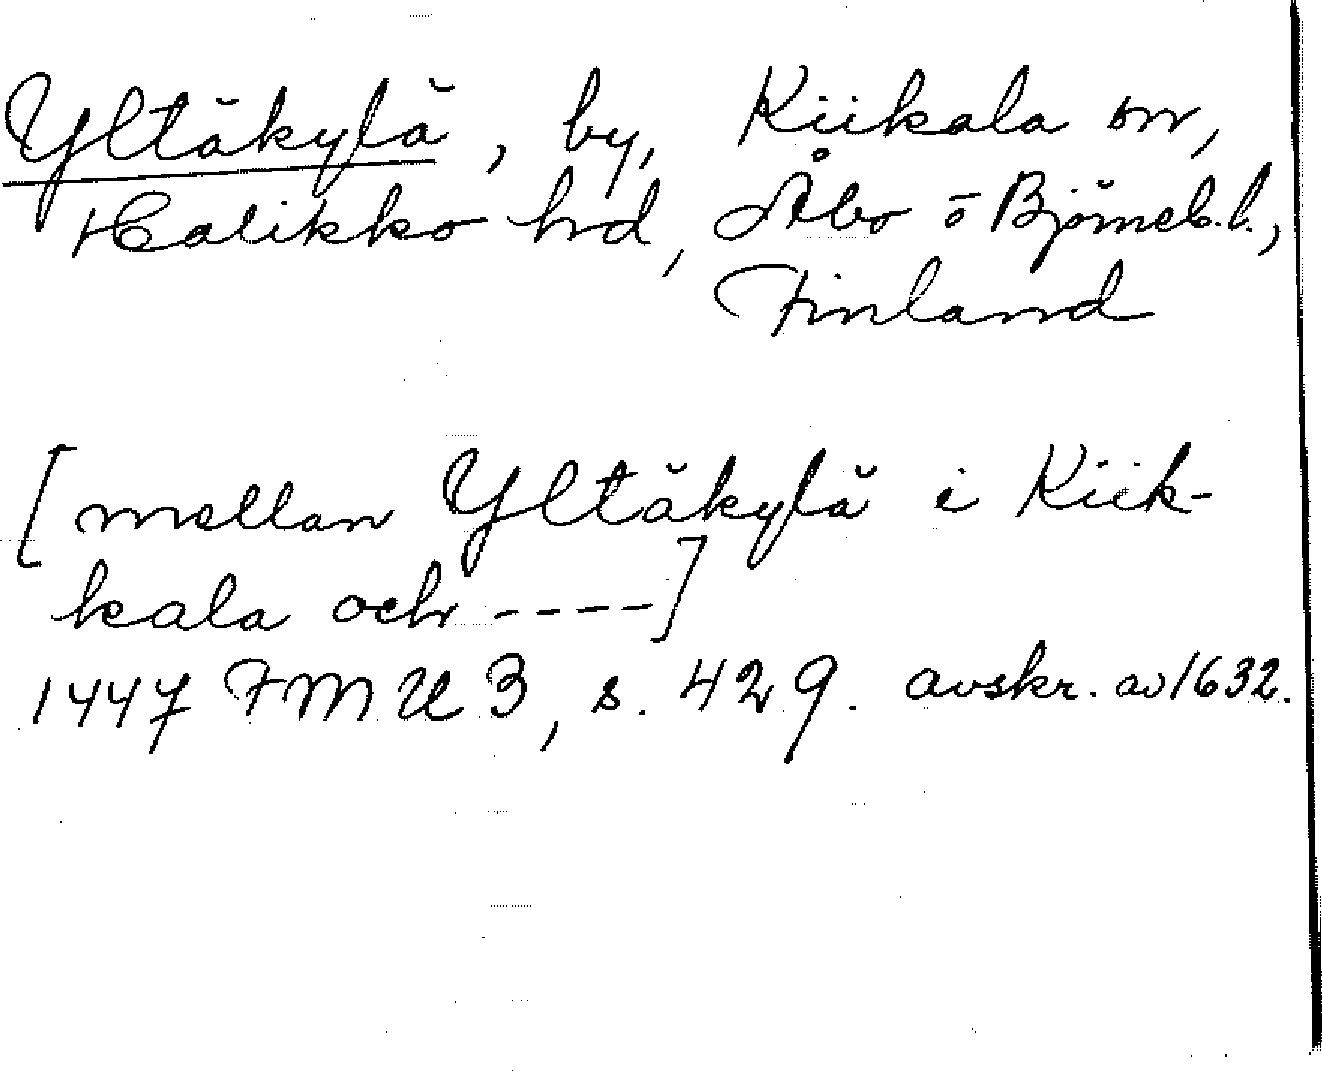 Yltäkylä, by, Kiikala sn,
Halikko hd, Åbo o Björneb. l.,
Finland
[mellan Yltäkylä i Kiik-
kala och ----]
1447 FMU 3, s. 429. avskr. av 1632.